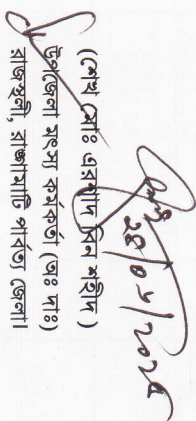 ২৪/০৮/২০২৫
(শেখ মোঃ এরশাদ বিন শহীদ)
উপজেলা মৎস্য কর্মকর্তা (অঃ দাঃ)
রাজস্থলী, রাঙ্গামাটি পার্বত্য জেলা।